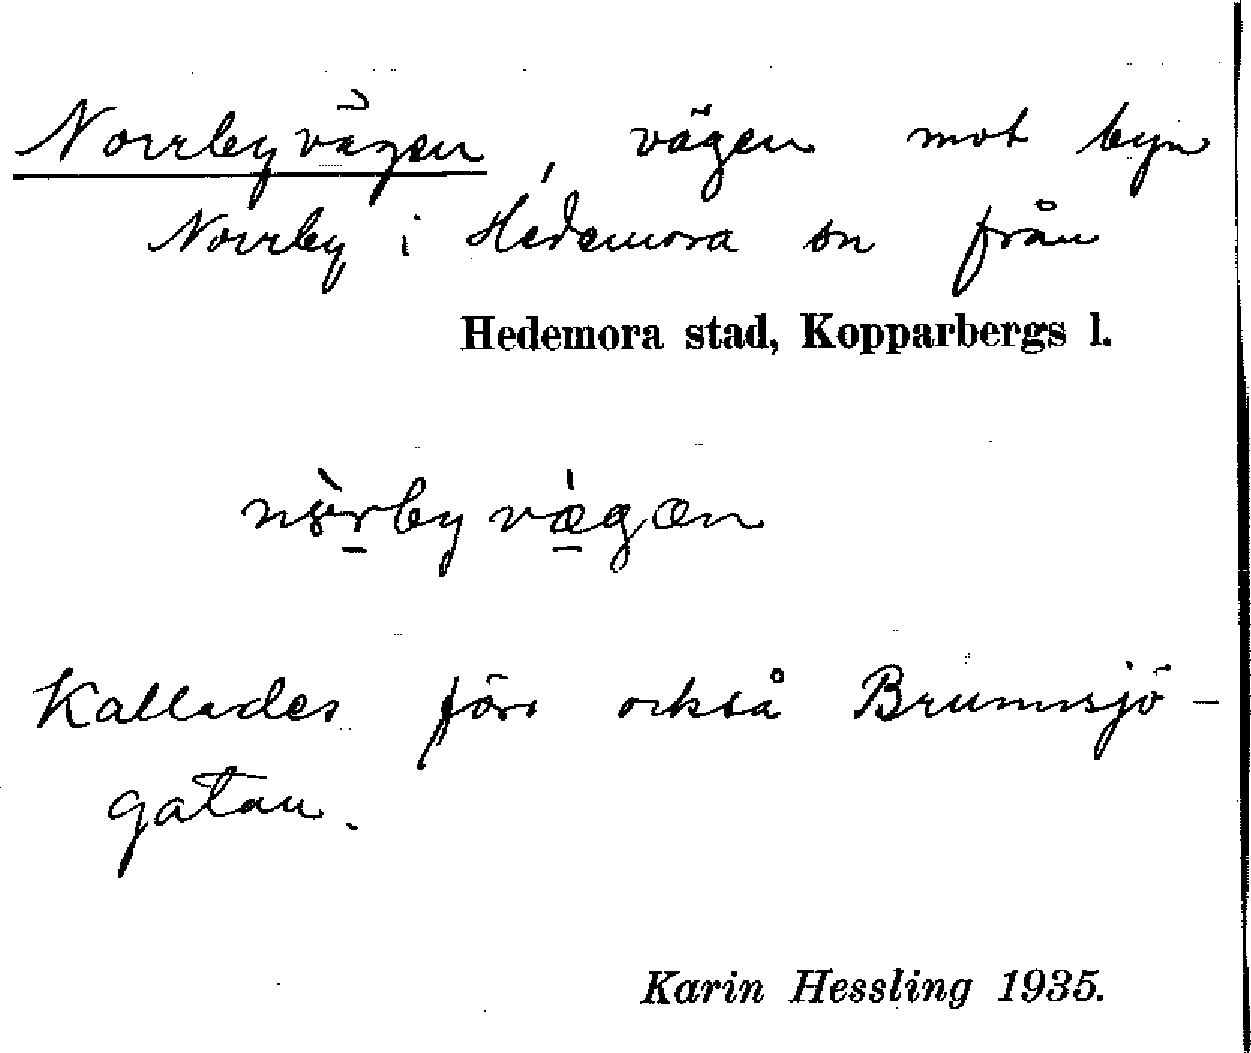 Norrbyvägen, vägen mot byn
Norrby i Hedemora sn från
Hedemora stad, Kopparbergs l.
Kallades förr också Brunnsjö-
gatan.
Karin Hessling 1935.